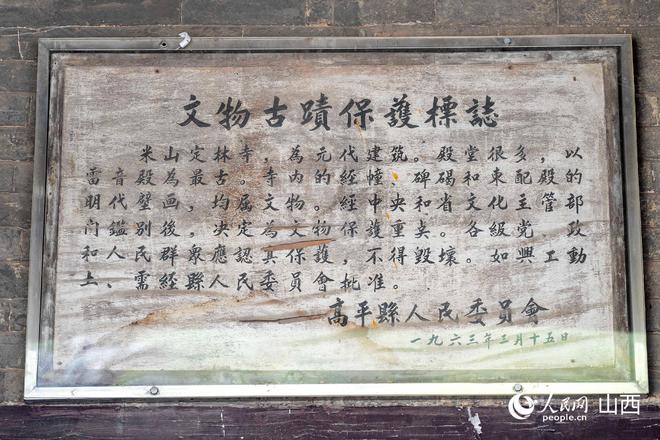 文物古蹟保護標誌
米山定林寺，為元代建筑。殿堂很多，以
雷音殿為最古。寺內的經幢、碑碣和東配殿的
明代壁画，均属文物。經中央和省文化主管部
门鑑别後，决定為文物保護重点。各級党政
和人民群衆應認真保護，不得毀壞。如興工動
土、需經縣人民委員會批准。
高平縣人民委員會
一九六三年三月十五日
人民网 山西
people.cn